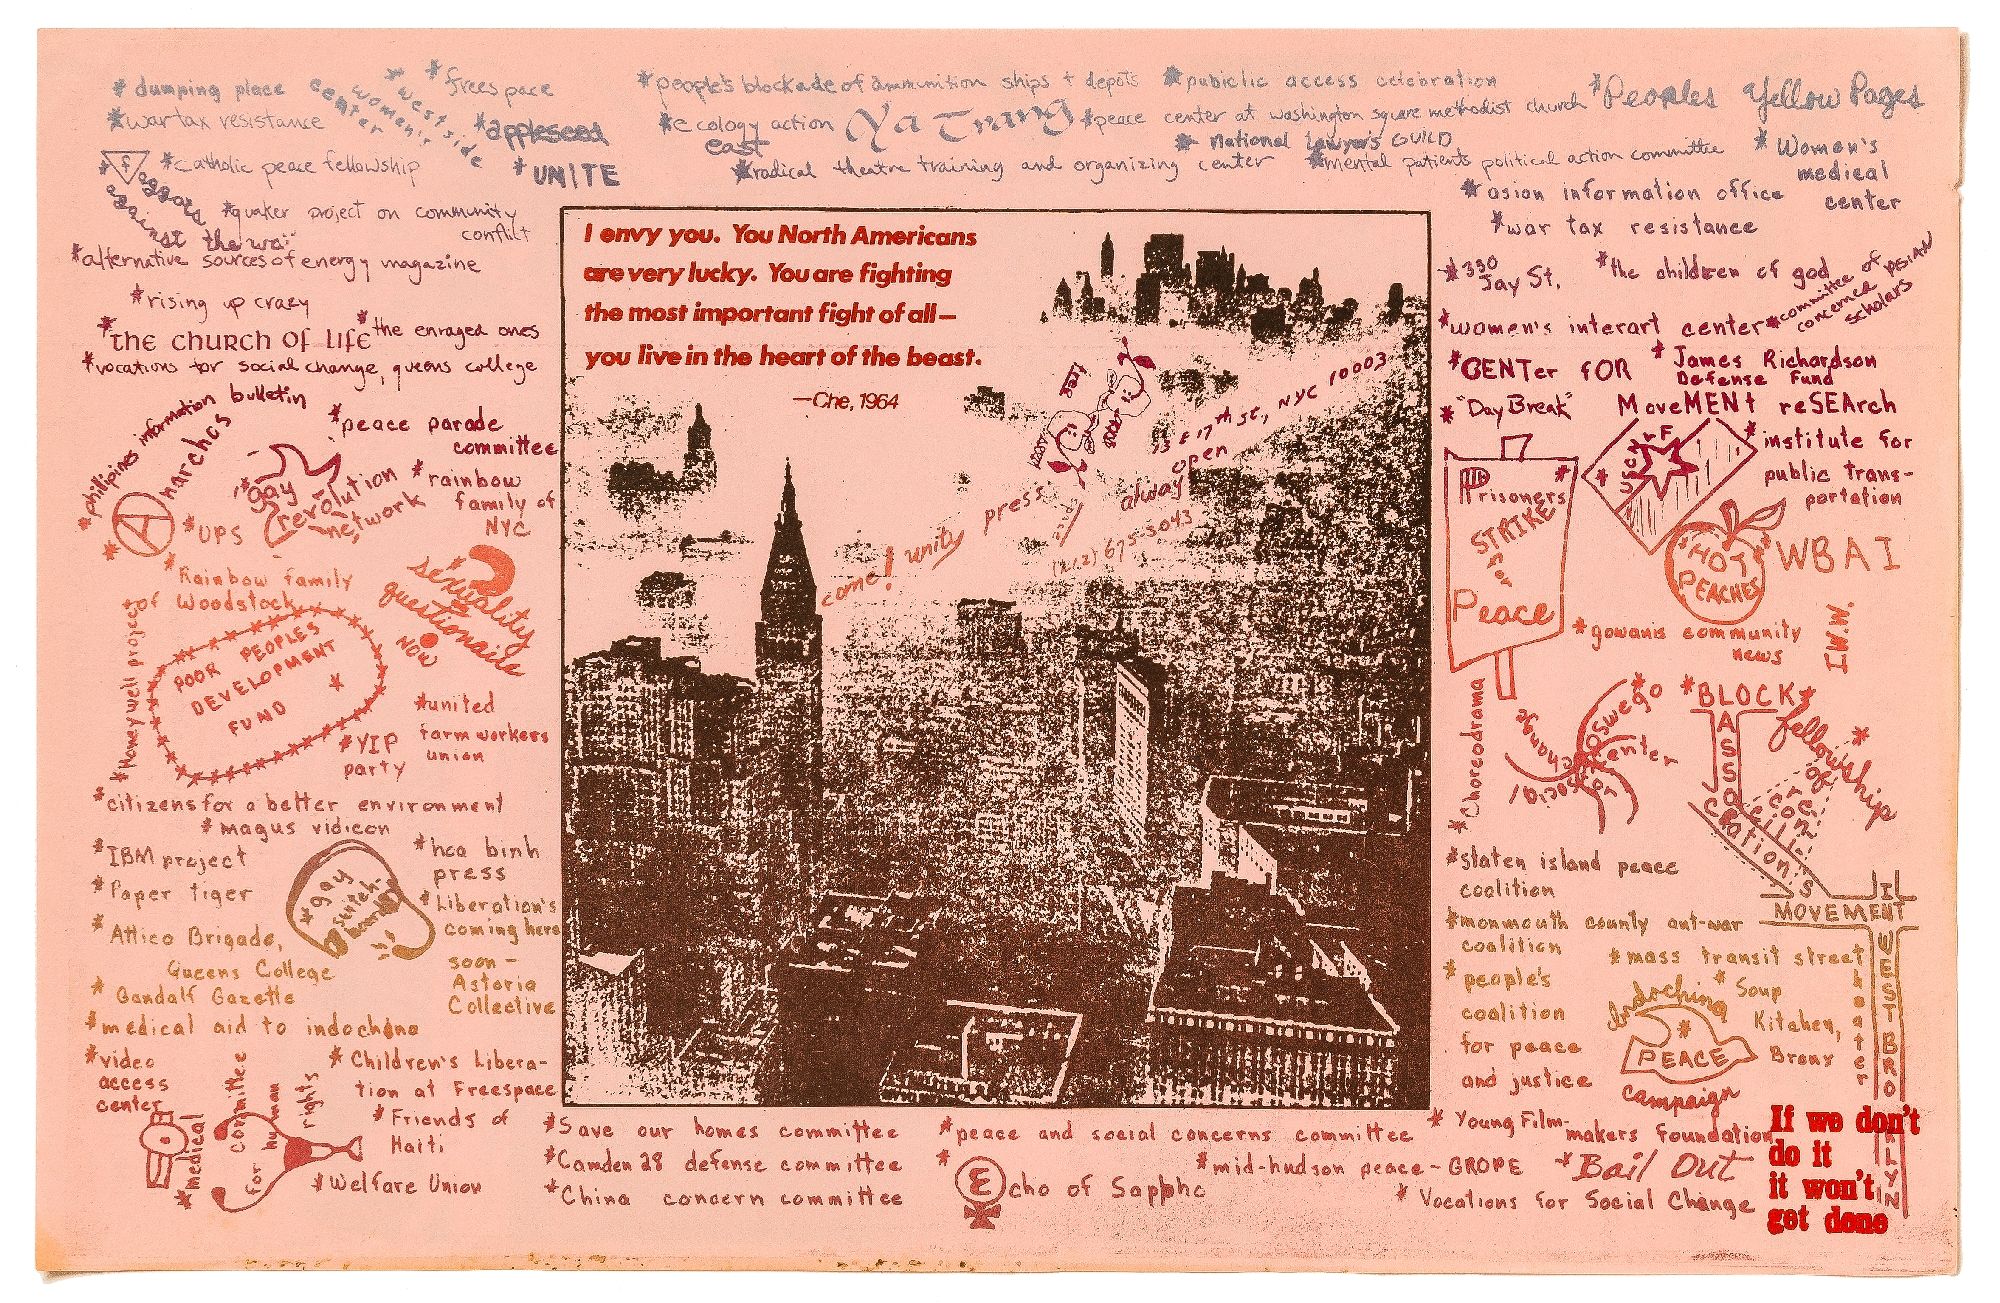 *dumping place
*west side
women's
center
*freespace
*wartax resistance
*appleseed
*catholic peace fellowship
*UNITE
against the war
*quaker project on community
conflict
*alternative sources of energy magazine
*rising up crazy
*the church of life
*the enraged ones
*vocations for social change, queens college
*phillipines information bulletin
*Anarchos
*peace parade
committee
*gay
revolution
network
*rainbow
family of
NYC
*UPS
*Rainbow family
of Woodstock
sexuality
questionaile
NOW
*Honeywell project
POOR PEOPLES
DEVELOPMENT
FUND
*YIP
party
*united
farmworkers
union
*citizens for a better environment
*magus vidicon
*IBM project
*Paper tiger
*hoa binh
press
*gay
switch-
board
*Attica Brigade,
Queens College
*Liberation's
coming here
soon -
Astoria
Collective
*Gandalf Gazette
*medical aid to indochina
*video
access
center
*medical
committee
for human
rights
*Children's Libera-
tion at Freespace
*Friends of
Haiti
*Welfare Union
*people's blockade of ammunition ships + depots
*pubiclic access celebration
*Peoples Yellow Pages
*ecology action
east
Ya Trang
*peace center at washington square methodist church
*national lawyer's GUILD
*radical theatre training and organizing center
*mental patients political action committee
*Women's
medical
center
I envy you. You North Americans
are very lucky. You are fighting
the most important fight of all—
you live in the heart of the beast.
—Che, 1964
come! unity press
free
13 E 17th st, NYC 10003
always open
(212) 675-3043
*asian information office
*war tax resistance
*330
Jay St.
*the children of god
*committee of
concerned asian
scholars
*women's interart center
*CENTer fOR
MoveMENt reSEArch
*James Richardson
Defense Fund
*"Day Break"
*institute for
public trans-
portation
*Prisoners
STRIKE
for
Peace
*HOT
PEACHES
WBAI
*gowanis community
news
I.W.W.
*Choreodrama
*oswego
center
for social
change
*BLOCK
ASSOCIATIONS
*fellowship
of
recon-
cili-
ation
MOVEMENT
IN
WEST BROOKLYN
*staten island peace
coalition
*monmouth county ant-war
coalition
*people's
coalition
for peace
and justice
*mass transit street
theater
*Soup
Kitchen,
Bronx
*Indochina
PEACE
Campaign
*Save our homes committee
*Camden 28 defense committee
*China concern committee
*peace and social concerns committee
*Echo of Sappho
*mid-hudson peace - GROPE
*Young Film-
makers foundation
*Bail Out
*Vocations for Social Change
If we don't
do it
it won't
get done